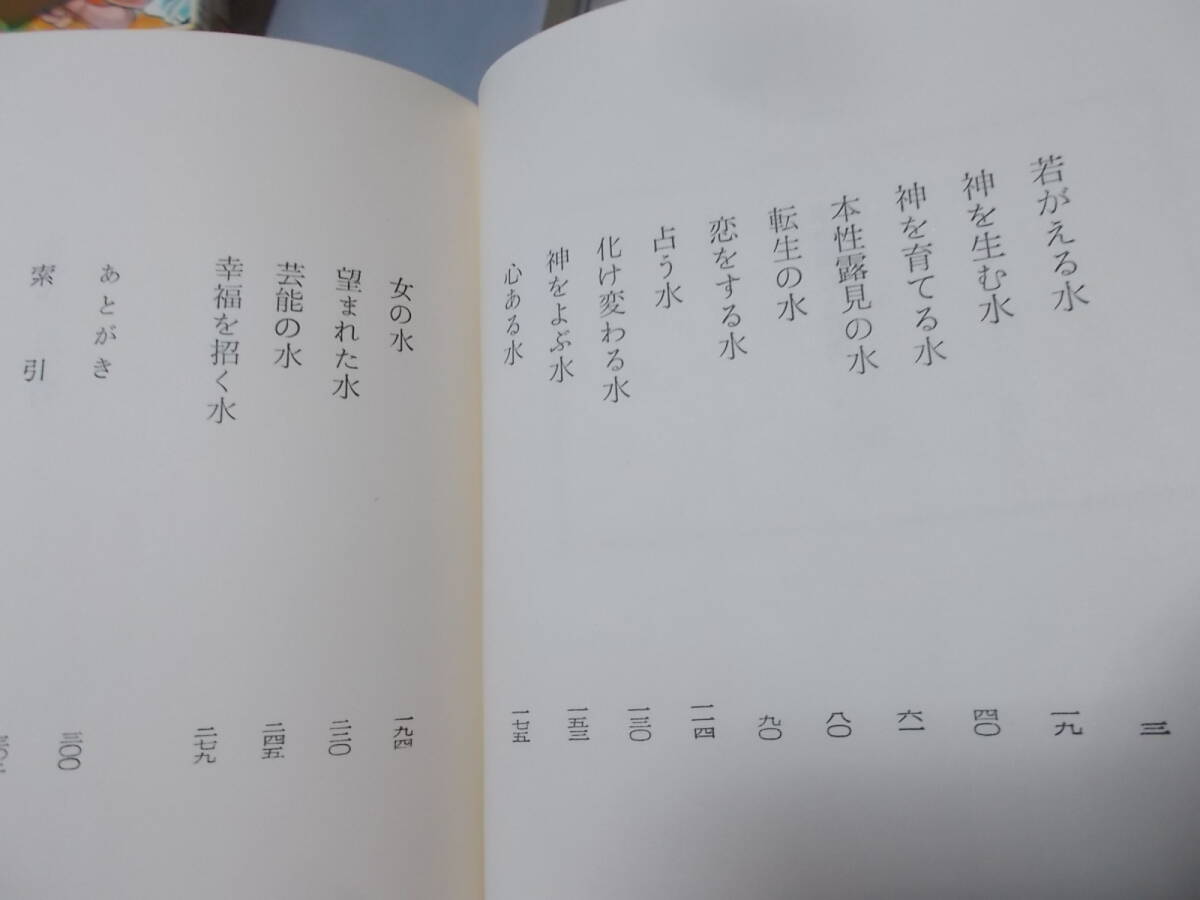 若がえる水 三
神を生む水 一九
神を育てる水 四〇
本性露見の水 六一
転生の水 八〇
恋をする水 九〇
占う水 一一四
化け変わる水 一三〇
神をよぶ水 一五三
心ある水 一七五
女の水 一九四
望まれた水 二二〇
芸能の水 二四五
幸福を招く水 二七九
あとがき 三〇〇
索 引